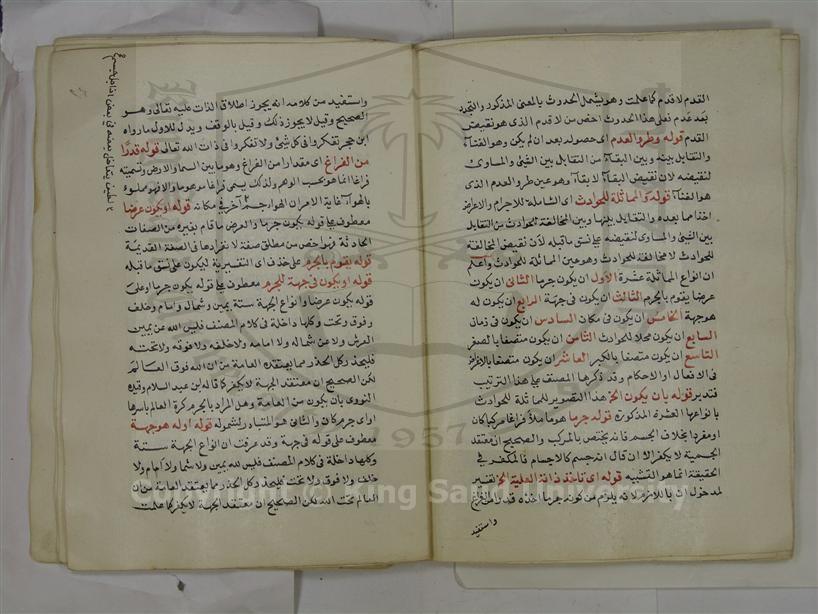 القدم لا قدم كما علمت وهو يشمل الحدوث بالمعنى المذكور والتجدد
بعد عدم فعلى هذا الحدوث اخص من لا قدم الذى هو نقيض
القدم قوله وطرو العدم اى حصوله بعد ان لم يكن وهو الفناء
والتقابل بينه وبين البقاء من التقابل بين الشئ والمساوى
لنقيضه لان نقيض البقاء لا بقاء وهو عين طرو العدم الذى
هو الفناء قوله والمماثلة للحوادث اى الشاملة للاجرام والاعراض
اخذا مما بعده والتقابل بينها وبين المخالفة للحوادث من التقابل
بين الشئ والمساوى لنقيضه على نسق ما قبله لأن نقيض المخالفة
للحوادث لا مخالفة للحوادث وهو عين المماثلة للحوادث واعلم
ان انواع المماثلة عشرة الأول ان يكون جرما الثانى ان يكون
عرضا يقوم بالجرم الثالث ان يكون فى جهة الرابع ان يكون له
هو جهة الخامس ان يكون فى مكان السادس ان يكون فى زمان
السابع ان يكون محلا للحوادث الثامن ان يكون متصفا بالصغر
التاسع ان يكون متصفا بالكبر العاشر ان يكون متصفا بالاغراض
فى الافعال او الاحكام وقد ذكرها المصنف على هذا الترتيب
فتدبر قوله بان يكون الخ هذا التصوير للمماثلة للحوادث
بانواعها العشرة المذكورة قوله جرما هو ما ملأ فراغا مركبا كان
او مفردا بخلاف الجسم فانه يختص بالمركب والصحيح ان معتقد
الجسمية لا يكفر الا ان قال انه جسم كالاجسام فالمكفر فى
الحقيقة انما هو التشبيه قوله اى تاخذ ذاته العلية الخ تفسير
لمدخول ان باللازم لانه يلزم من كونه جرما اخذه قدرا من الفراغ
واستفيد
واستفيد من كلامه انه يجوز اطلاق الذات عليه تعالى وهو
الصحيح وقيل لا يجوز ذلك وقيل بالوقف ويدل للاول ما رواه
ابن حجر تفكروا فى كل شئ ولا تفكروا فى ذات الله تعالى قوله قدرا
من الفراغ اى مقدارا من الفراغ وهو ما بين السما والارض وتسميته
فراغا انما هو بحسب الوهم ولذلك يسمى فراغا موهوما والا فهو مملوء
بالهواء غاية الامر ان الهوا جرم آخر فى مكانه قوله او يكون عرضا
معطوف على قوله يكون جرما والعرض ما قام بغيره من الصفات
الحادثة فهو اخص من مطلق صفة لانفرادها فى الصفة القديمة
قوله يقوم بالجرم على حذف اى التفسيرية ليكون على نسق ما قبله
قوله او يكون فى جهة للجرم معطوف على قوله يكون جرما او على
قوله يكون عرضا وانواع الجهة ستة يمين وشمال وامام وخلف
وفوق وتحت وكلها داخلة فى كلام المصنف فليس الله عن يمين
العرش ولا عن شماله ولا امامه ولا خلفه ولا فوقه ولا تحته
فليحذر كل الحذر مما يعتقده العامة من ان الله فوق العالم
لكن الصحيح ان معتقد الجهة لا يكفر كما قاله ابن عبد السلام وقيده
النووى بان يكون من العامة وهل المراد بالجرم كرة العالم باسرها
او اى جرم كان والثانى هو المتبادر لشموله قوله او له هو جهة
معطوف على قوله فى جهة وقد عرفت ان انواع الجهة ستة
وكلها داخلة فى كلام المصنف فليس لله يمين ولا شمال ولا امام ولا
خلف ولا فوق ولا تحت فليحذر كل الحذر مما يعتقد العامة من ان
العالم تحت الله لكن الصحيح ان معتقد الجهة لا يكفر كما علمت
1957
Copyright © King Saud University